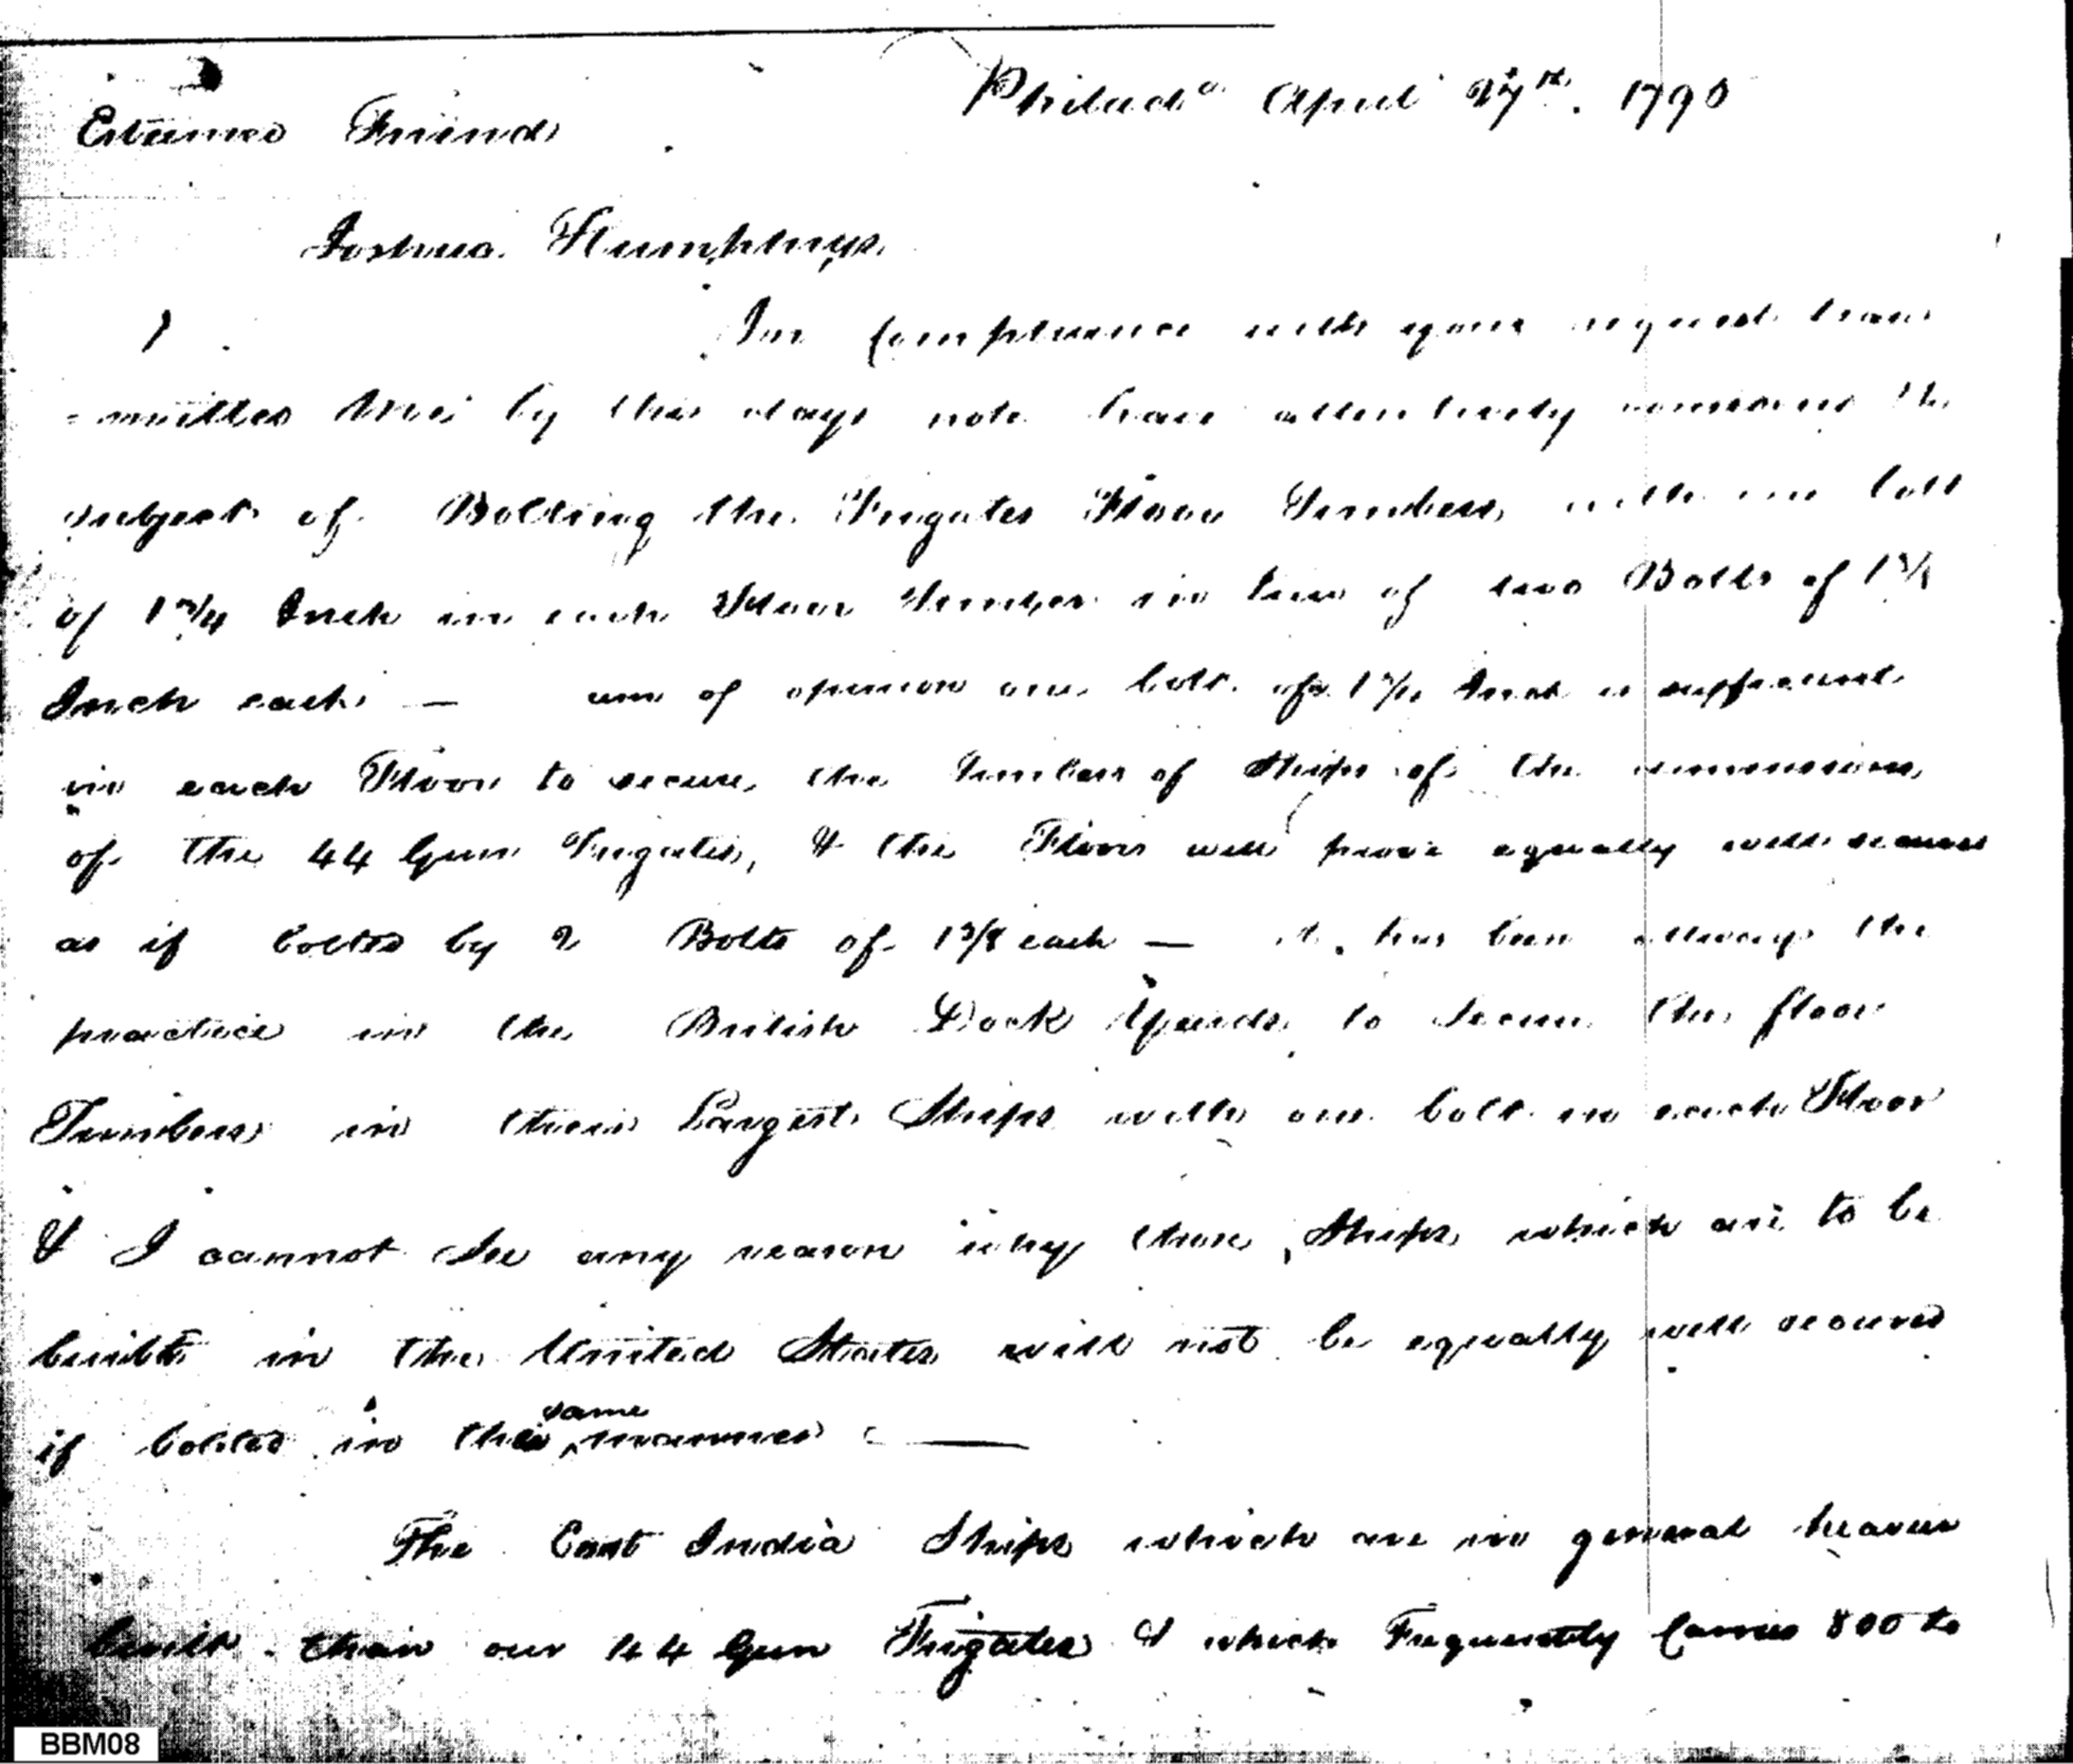 Philad.a April 27th. 1795
Esteemed Friend
Joshua Humphreys
In Compliance with your request trans
-mitted me by this days note have attentively considered the
subject of Bolting the Frigates Floor Timbers with one bolt
of 1 3/4 Inch in each Floor Timber in lieu of two Bolts of 1 3/8
Inch each — am of opinion one bolt of 1 3/4 Inch is sufficient
in each Floor to secure the timbers of Ships of the dimensions
of the 44 Gun Frigates, & the Floors will prove equally well secured
as if bolted by 2 Bolts of 1 3/8 each — it has been allways the
practice in the British Dock Yards to secure the floor
Timbers in their Largest Ships with one bolt in each Floor
& I cannot see any reason why those Ships which are to be
built in the United States will not be equally well secured
same
if bolted in the manner —
The East India Ships which are in general heavier
built than our 44 Gun Frigates & which Frequently Carries 800 to
BBM08